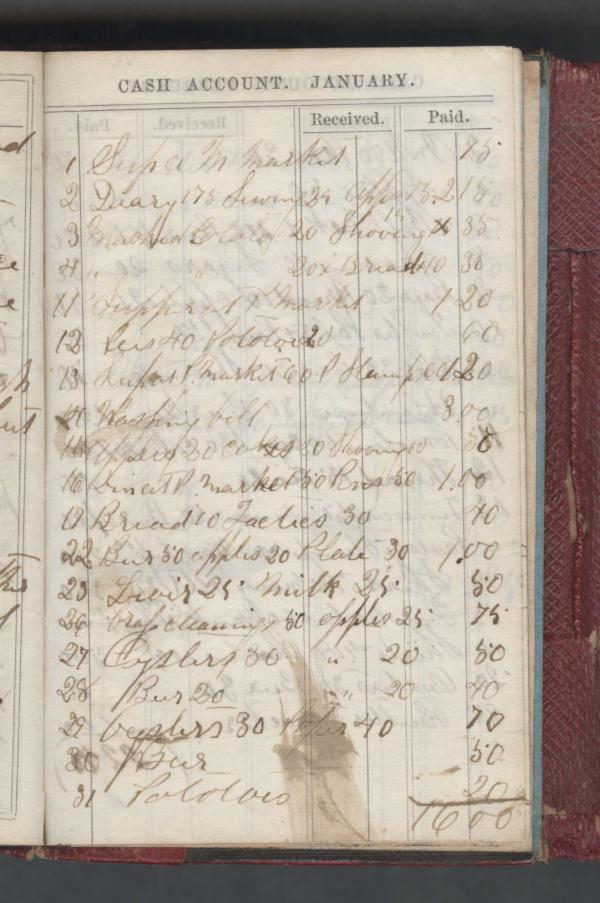 CASH ACCOUNT. JANUARY.
Received. Paid.
1 Sup at M Market 75
2 Diary 175 Sewing 25 apps 15 2 15
3 Mashed 20 Shoving 35
4 " " 20 x Bread 10 30
11 Supper at Market 1 20
12 Pies 40 Potatoes 20 60
13 P. Market 60 P Stamp 60 1.20
14 Washing bill 3.00
15 apples 20 20 Shoving 10 50
16 P. Market 50 Pens 50 1.00
17 Bread 10 30 40
22 Bur 50 apples 20 Plate 30 1.00
23 25 Milk 25 50
26 cleaning 50 apples 25 75
27 Oysters 30 " 20 50
28 Bur 20 " 20 40
29 Oysters 30 40 70
30 Bur 50
31 Pototoes 20
16 00